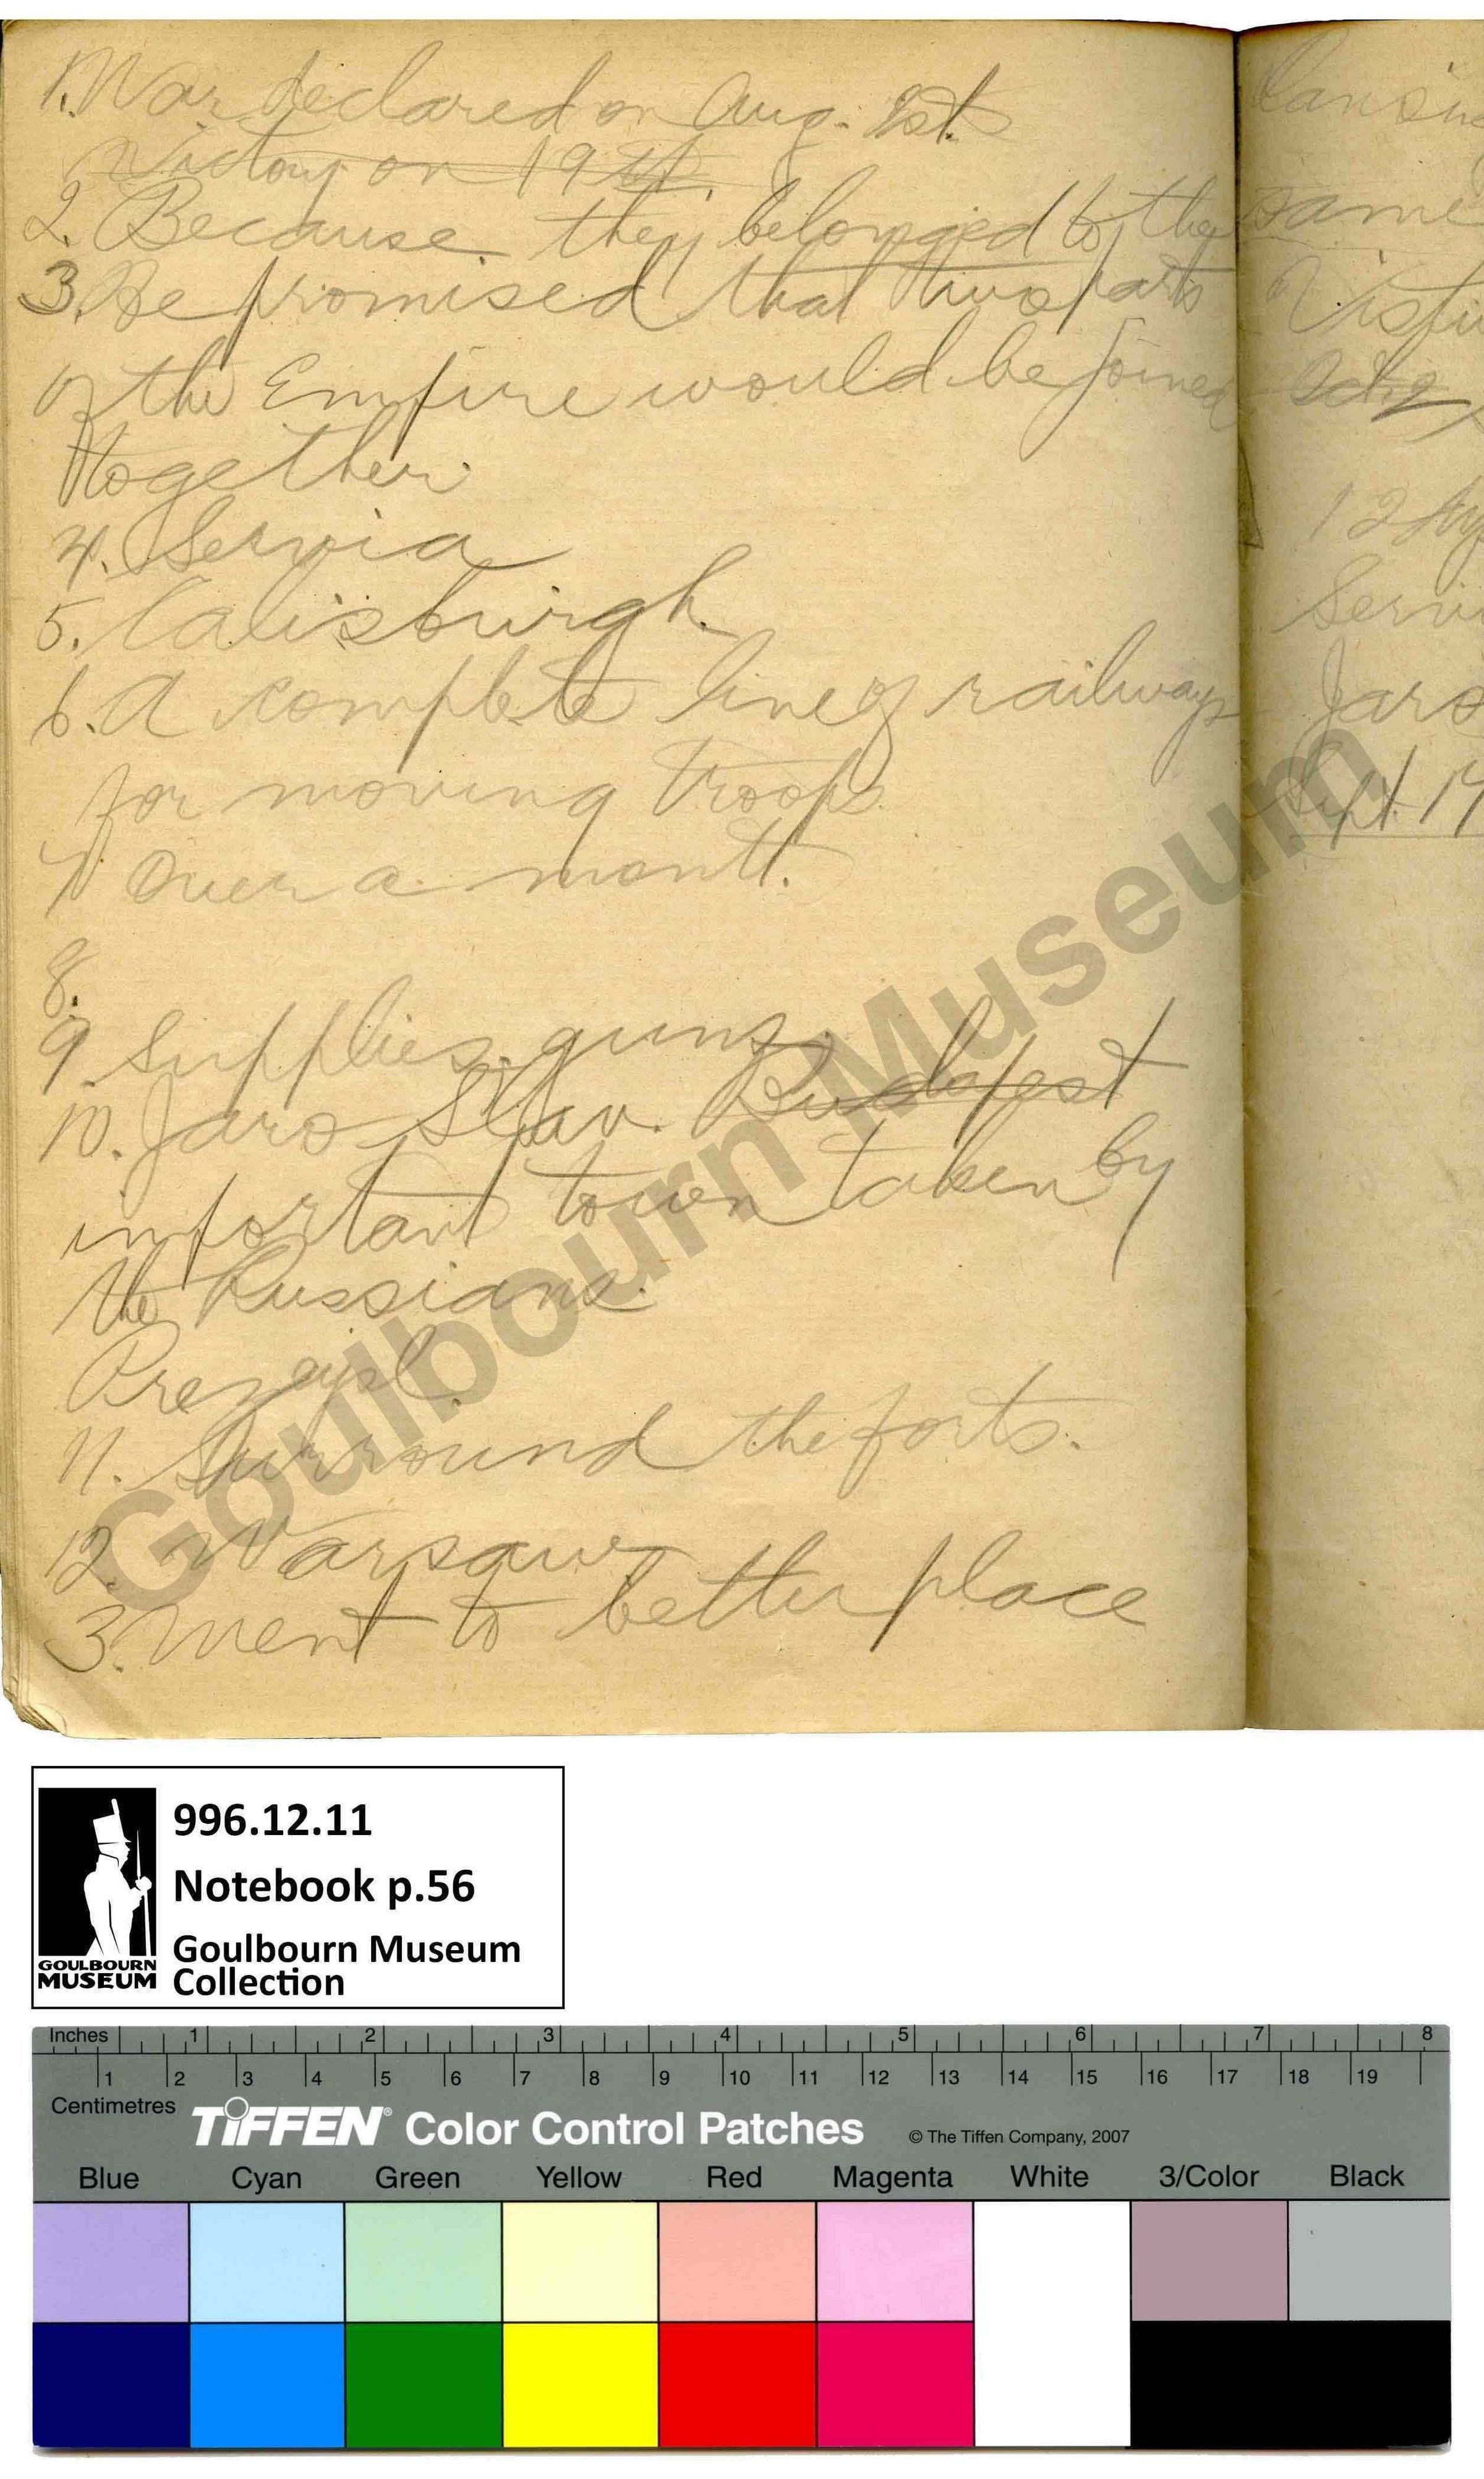 1. War declared on Aug. 1st.
Victory on 19th.
2. Because they belonged to the
3. He promised that two parts
of the Empire would be joined
together.
4. Servia
5.
6. A complete line of railways
for moving troops.
7. Over a month.
8.
9. Supplies, guns,
10. Jaro Slav. Budapest
important town taken by
the Russians.
11. Surround the forts.
12. Warsaw
3. Went to better place
same
Servi
Jaro
Sept. 14
Goulbourn Museum
996.12.11
Notebook p.56
Goulbourn Museum
Collection
GOULBOURN
MUSEUM
Inches 1 2 3 4 5 6 7 8
1 2 3 4 5 6 7 8 9 10 11 12 13 14 15 16 17 18 19
Centimetres
TIFFEN® Color Control Patches © The Tiffen Company, 2007
Blue Cyan Green Yellow Red Magenta White 3/Color Black